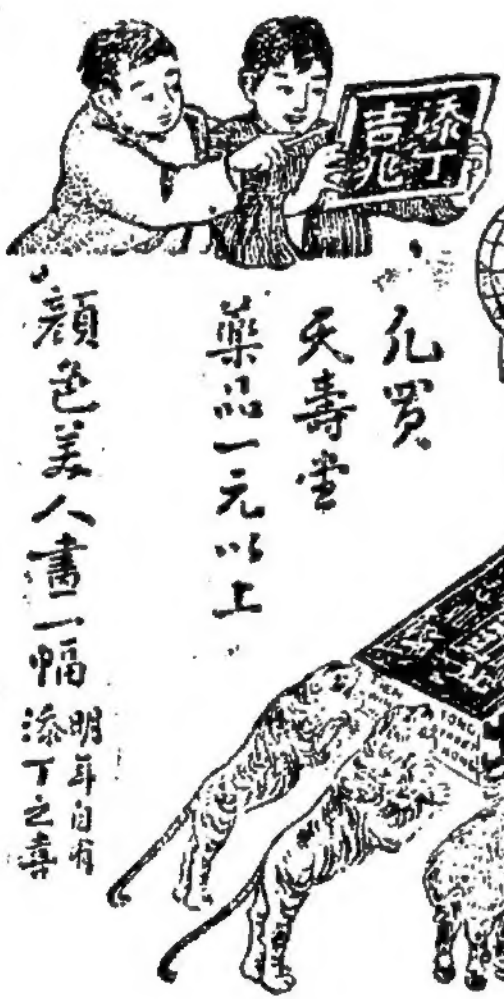 添丁
吉兆
凡買
天壽堂
藥品一元以上
顏色美人畫一幅
明年自有
添丁之喜
TONG